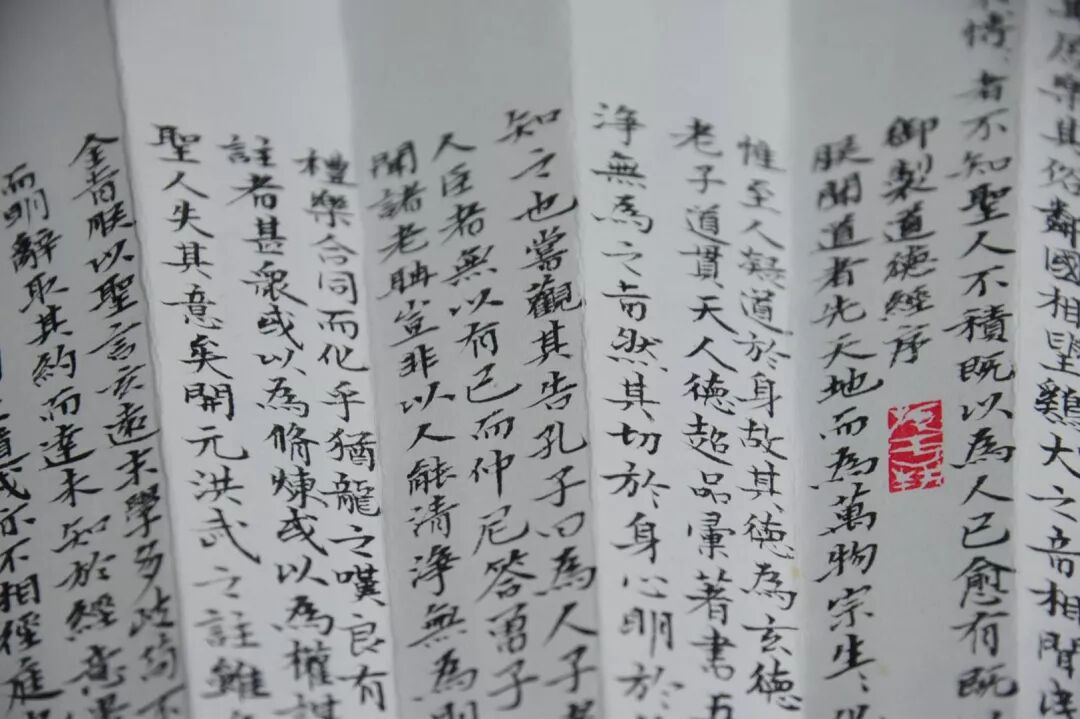 其俗鄰國相望雞犬之音相聞
情者不知聖人不積既以為人已愈有既
御製道德經序
朕聞道者先天地而為萬物宗生生
惟至人凝道於身故其德為玄德
老子道貫天人德超品彙著書五
淨無為之旨然其切於身心明於
知之也嘗觀其告孔子曰為人子
人臣者無以有已而仲尼答曾子
聞諸老聃豈非以人能清淨無為則
禮樂合同而化乎猶龍之嘆良有
註者甚衆或以為脩煉或以為權謀
聖人失其意矣開元洪武之註雖
全旨朕以聖言玄遠末學多歧
而明辭取其約而達未知於經意
亦不相徑庭